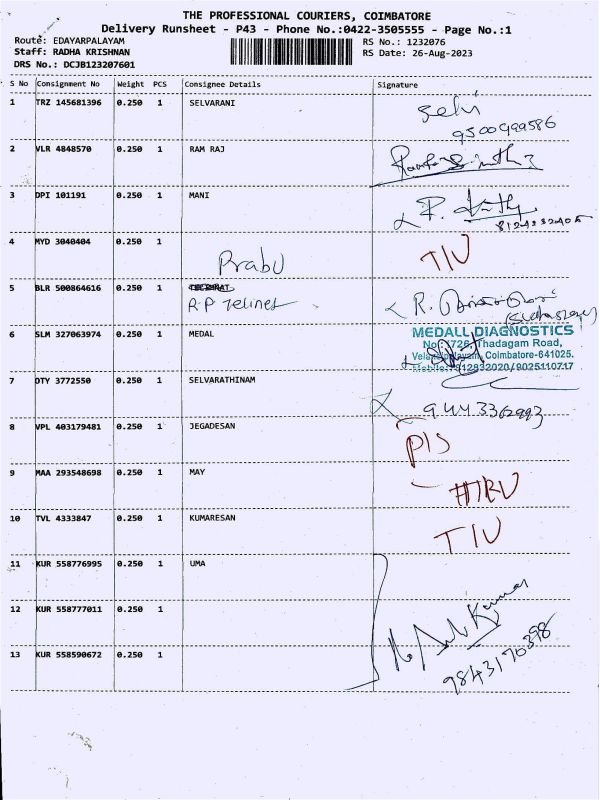 THE PROFESSIONAL COURIERS, COIMBATORE
Delivery Runsheet - P43 - Phone No.:0422-3505555 - Page No.:1
Route: EDAYARPALAYAM RS No.: 1232076
Staff: RADHA KRISHNAN RS Date: 26-Aug-2023
DRS No.: DCJB123207601
S No Consignment No Weight PCS Consignee Details Signature
1 TRZ 145681396 0.250 1 SELVARANI Selvi
9500999586
2 VLR 4848570 0.250 1 RAM RAJ
3 DPI 101191 0.250 1 MANI
4 MYD 3040404 0.250 1 Prabu TIU
5 BLR 500864616 0.250 1
R.P Telines R.
6 SLM 327063974 0.250 1 MEDAL MEDALL DIAGNOSTICS
Thadagam Road,
Coimbatore-641025.
/9025110717
7 DTY 3772550 0.250 1 SELVARATHINAM
8 VPL 403179481 0.250 1 JEGADESAN PIS
9 MAA 293548698 0.250 1 MAY
10 TVL 4333847 0.250 1 KUMARESAN TIU
11 KUR 558776995 0.250 1 UMA
12 KUR 558777011 0.250 1 Kumar
13 KUR 558590672 0.250 1 9843170398